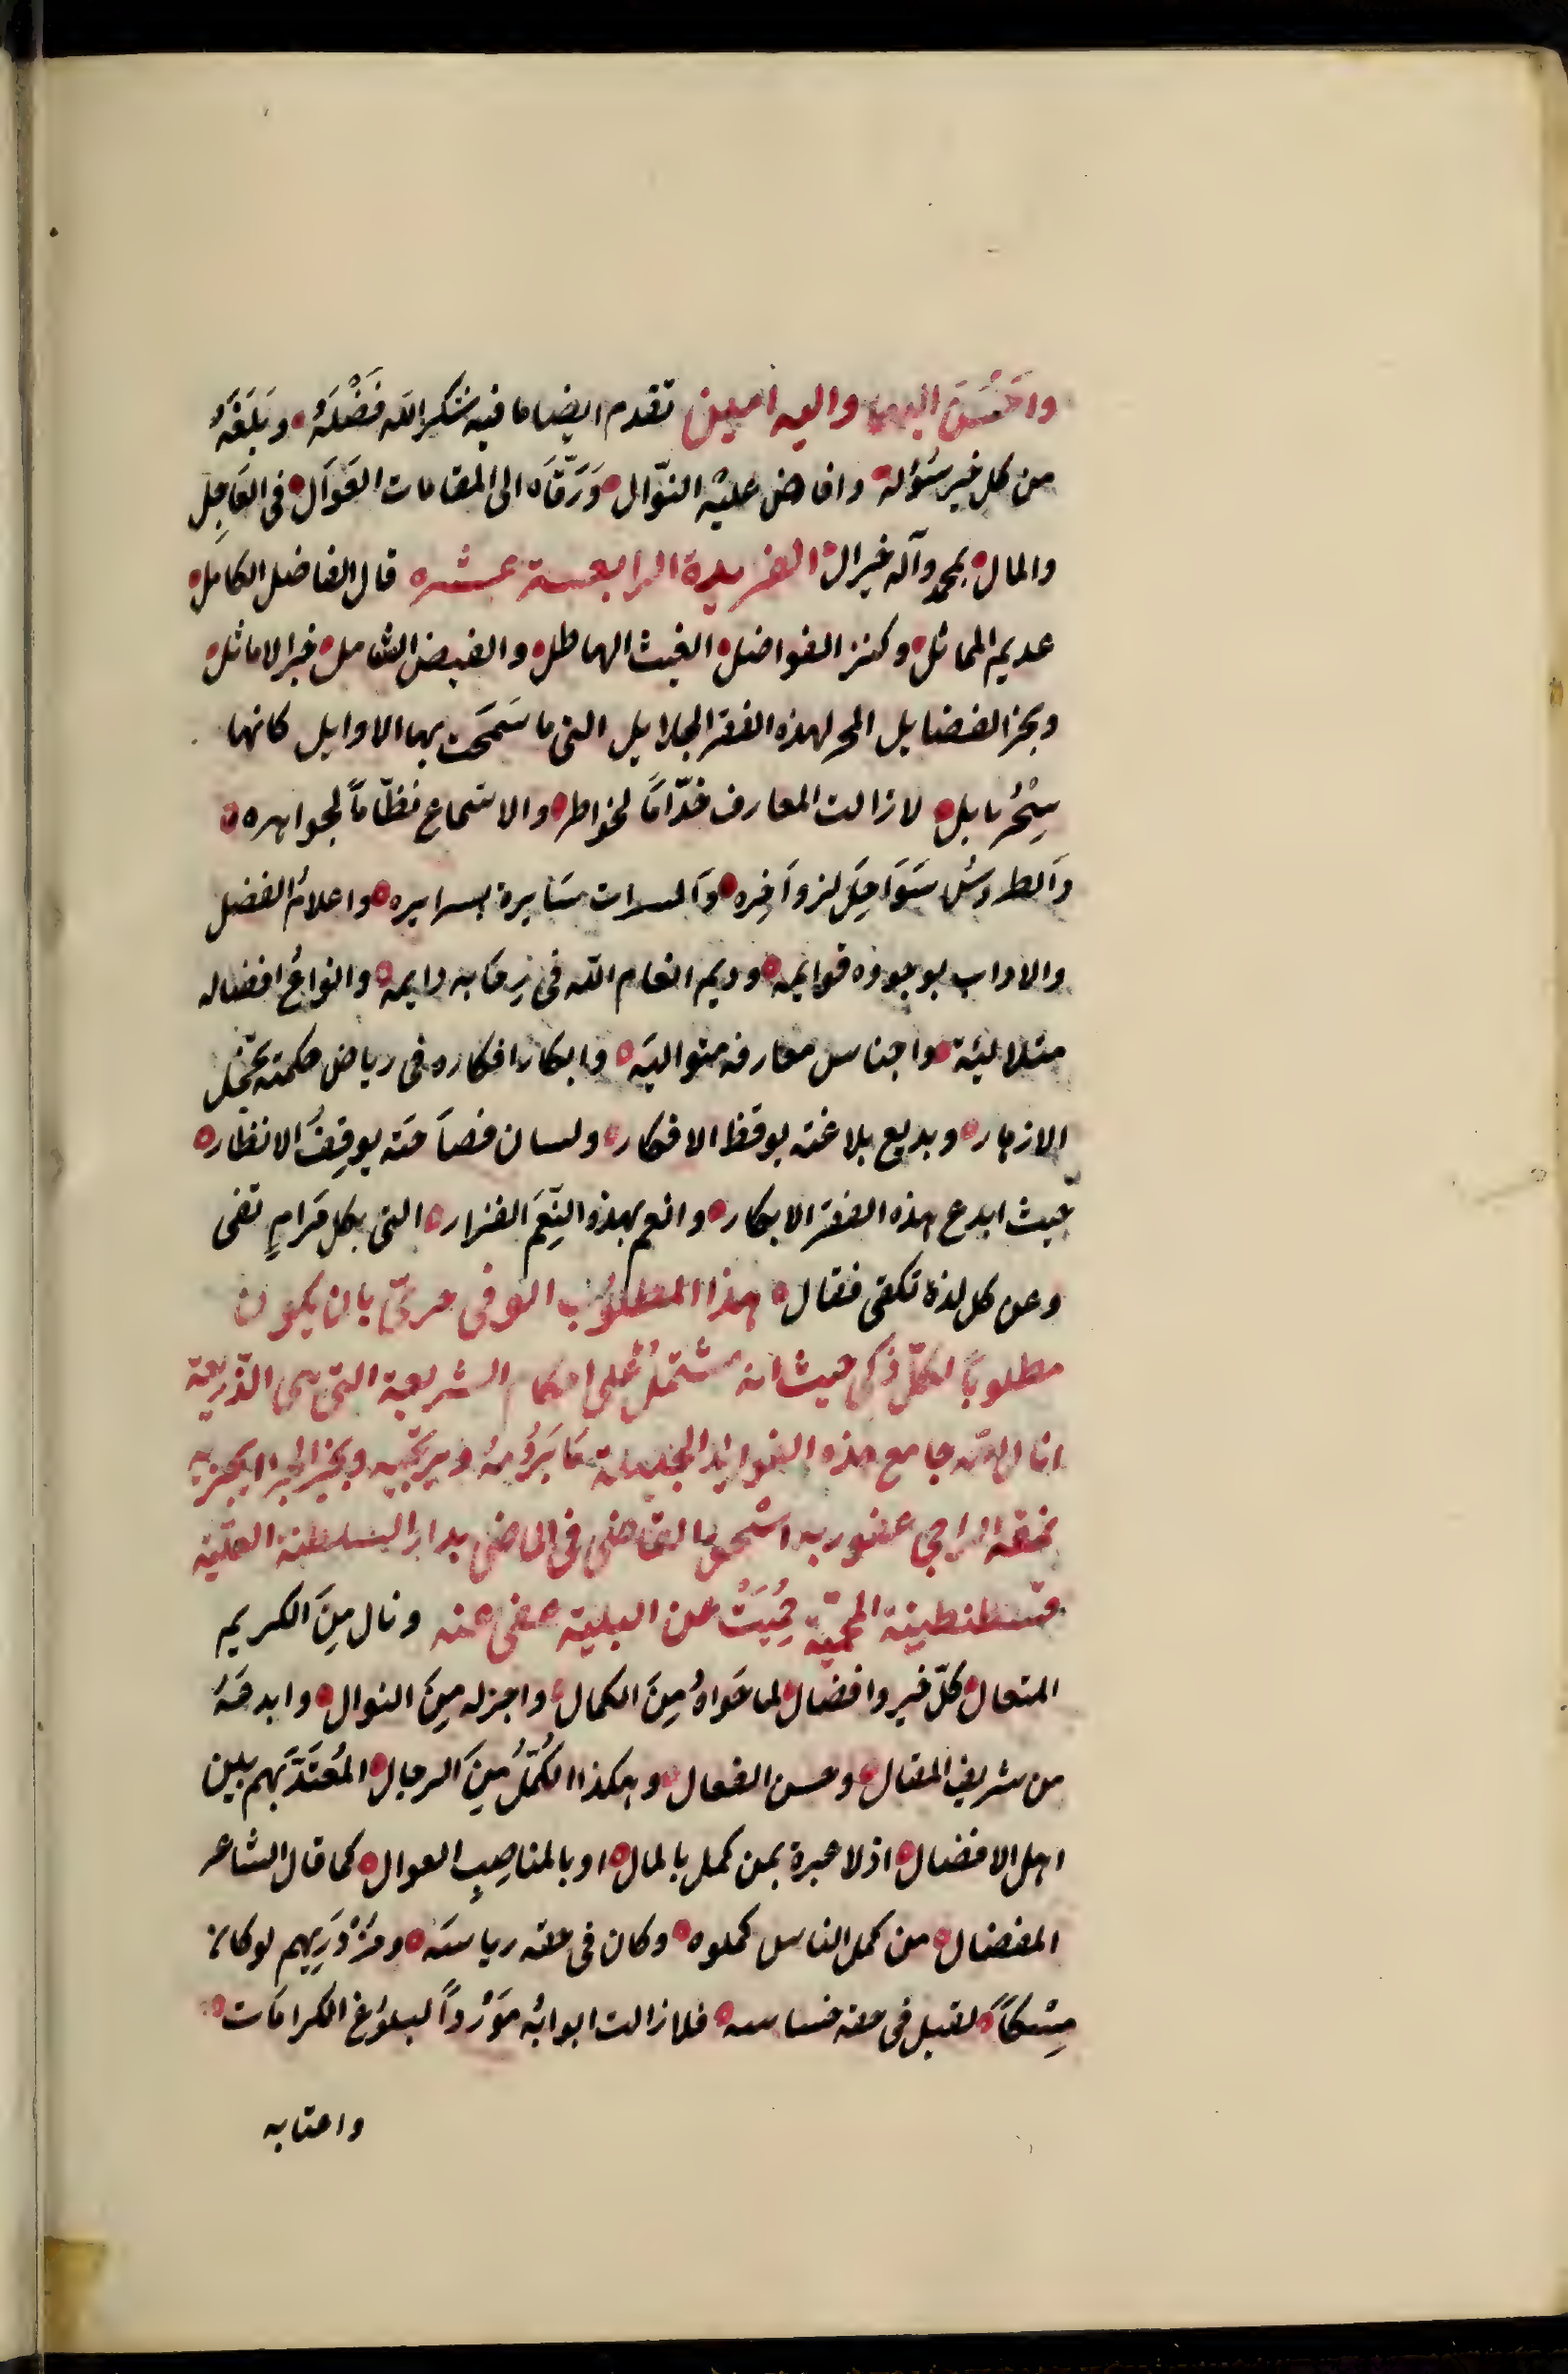 واحسن اليهما واليه امين تقدم ايضا ما فيه شكر الله فَضْلَهُ وبَلَغَهُ
من كل خير سُؤله وافاض عليه النّوال وَرَقّاه الى المقامات العَوَال فى العَاجِل
والمال بمحمد وآله خير ال الفريدة الرابعة عشره قال الفاضل الكامل
عديم المماثل وكنز الفواضل الغيث الهاطل والفيض الشامل خير الاماثل
وبحر الفضايل المحر لهذه الفقر الجلايل التى ما سَمَحَت بها الاوايل كانها
سِحْرُ بابل لا زالت المعارف خدّامًا لخواطره والاسماع نظّامًا لجواهره
والطروسُ سَوَاحِلَ لزواخِره والمسرات سَايرة بسرايره واعلامُ الفضل
والاداب بوجوده قوايمه وديم انعام الله فى رحابه دايمه وانواعُ افضاله
متلاليئة واجناس معارفه متواليَه وابكار افكاره فى رياض حكمته تخجل
الازهار وبديع بلاغته يوقظ الافكار ولسان فصاحته يوقِفُ الانظار
حيث ابدع هذه الفقر الابكار وانعم بهذه النِّعَم الغزار التى بكل مَرامٍ تفى
وعن كل لذة تكفى فقال هذا المطلوُب الوفى حرىّ بان يكون
مطلوبًا لكلّ ذكى حيث انه مشتملٌ على احكام الشريعة التى هى الذّريعة
انال الله جامع هذه الفوايد الجليلة مَا يَرُومُهُ ويرتجيه وبخير الجزا يجزيه
نمقه الراجى عفو ربه اسْحق القاضى فى الماضى بدار السلطنة العليّه
قسطنطينة المحميّة حُميَتْ عن البلية عفى عنه ونال مِنَ الكريم
المتعال كلّ خير وافضال لما حَوَاهُ مِنَ الكمال واجزله مِنَ النوال وابدعَهُ
من شريف المقال وحسن الفعال وهكذا الكُمّلُ مِنَ الرجال المُعتَدّ بهم بين
اهل الافضال اذ لا عبرة بمن كمل بالمال او بالمناصِبِ العوال كما قال الشاعر
المفضال من كمل الناس كملوه وكان فى حقه رياسَه ومَنْ دَرِيهم لو كان
مِسْكاً لقيل فى حقه خساسه فلا زالت ابوابُه مَوْرداً لبلوُغ الكرامَات
واعتابه